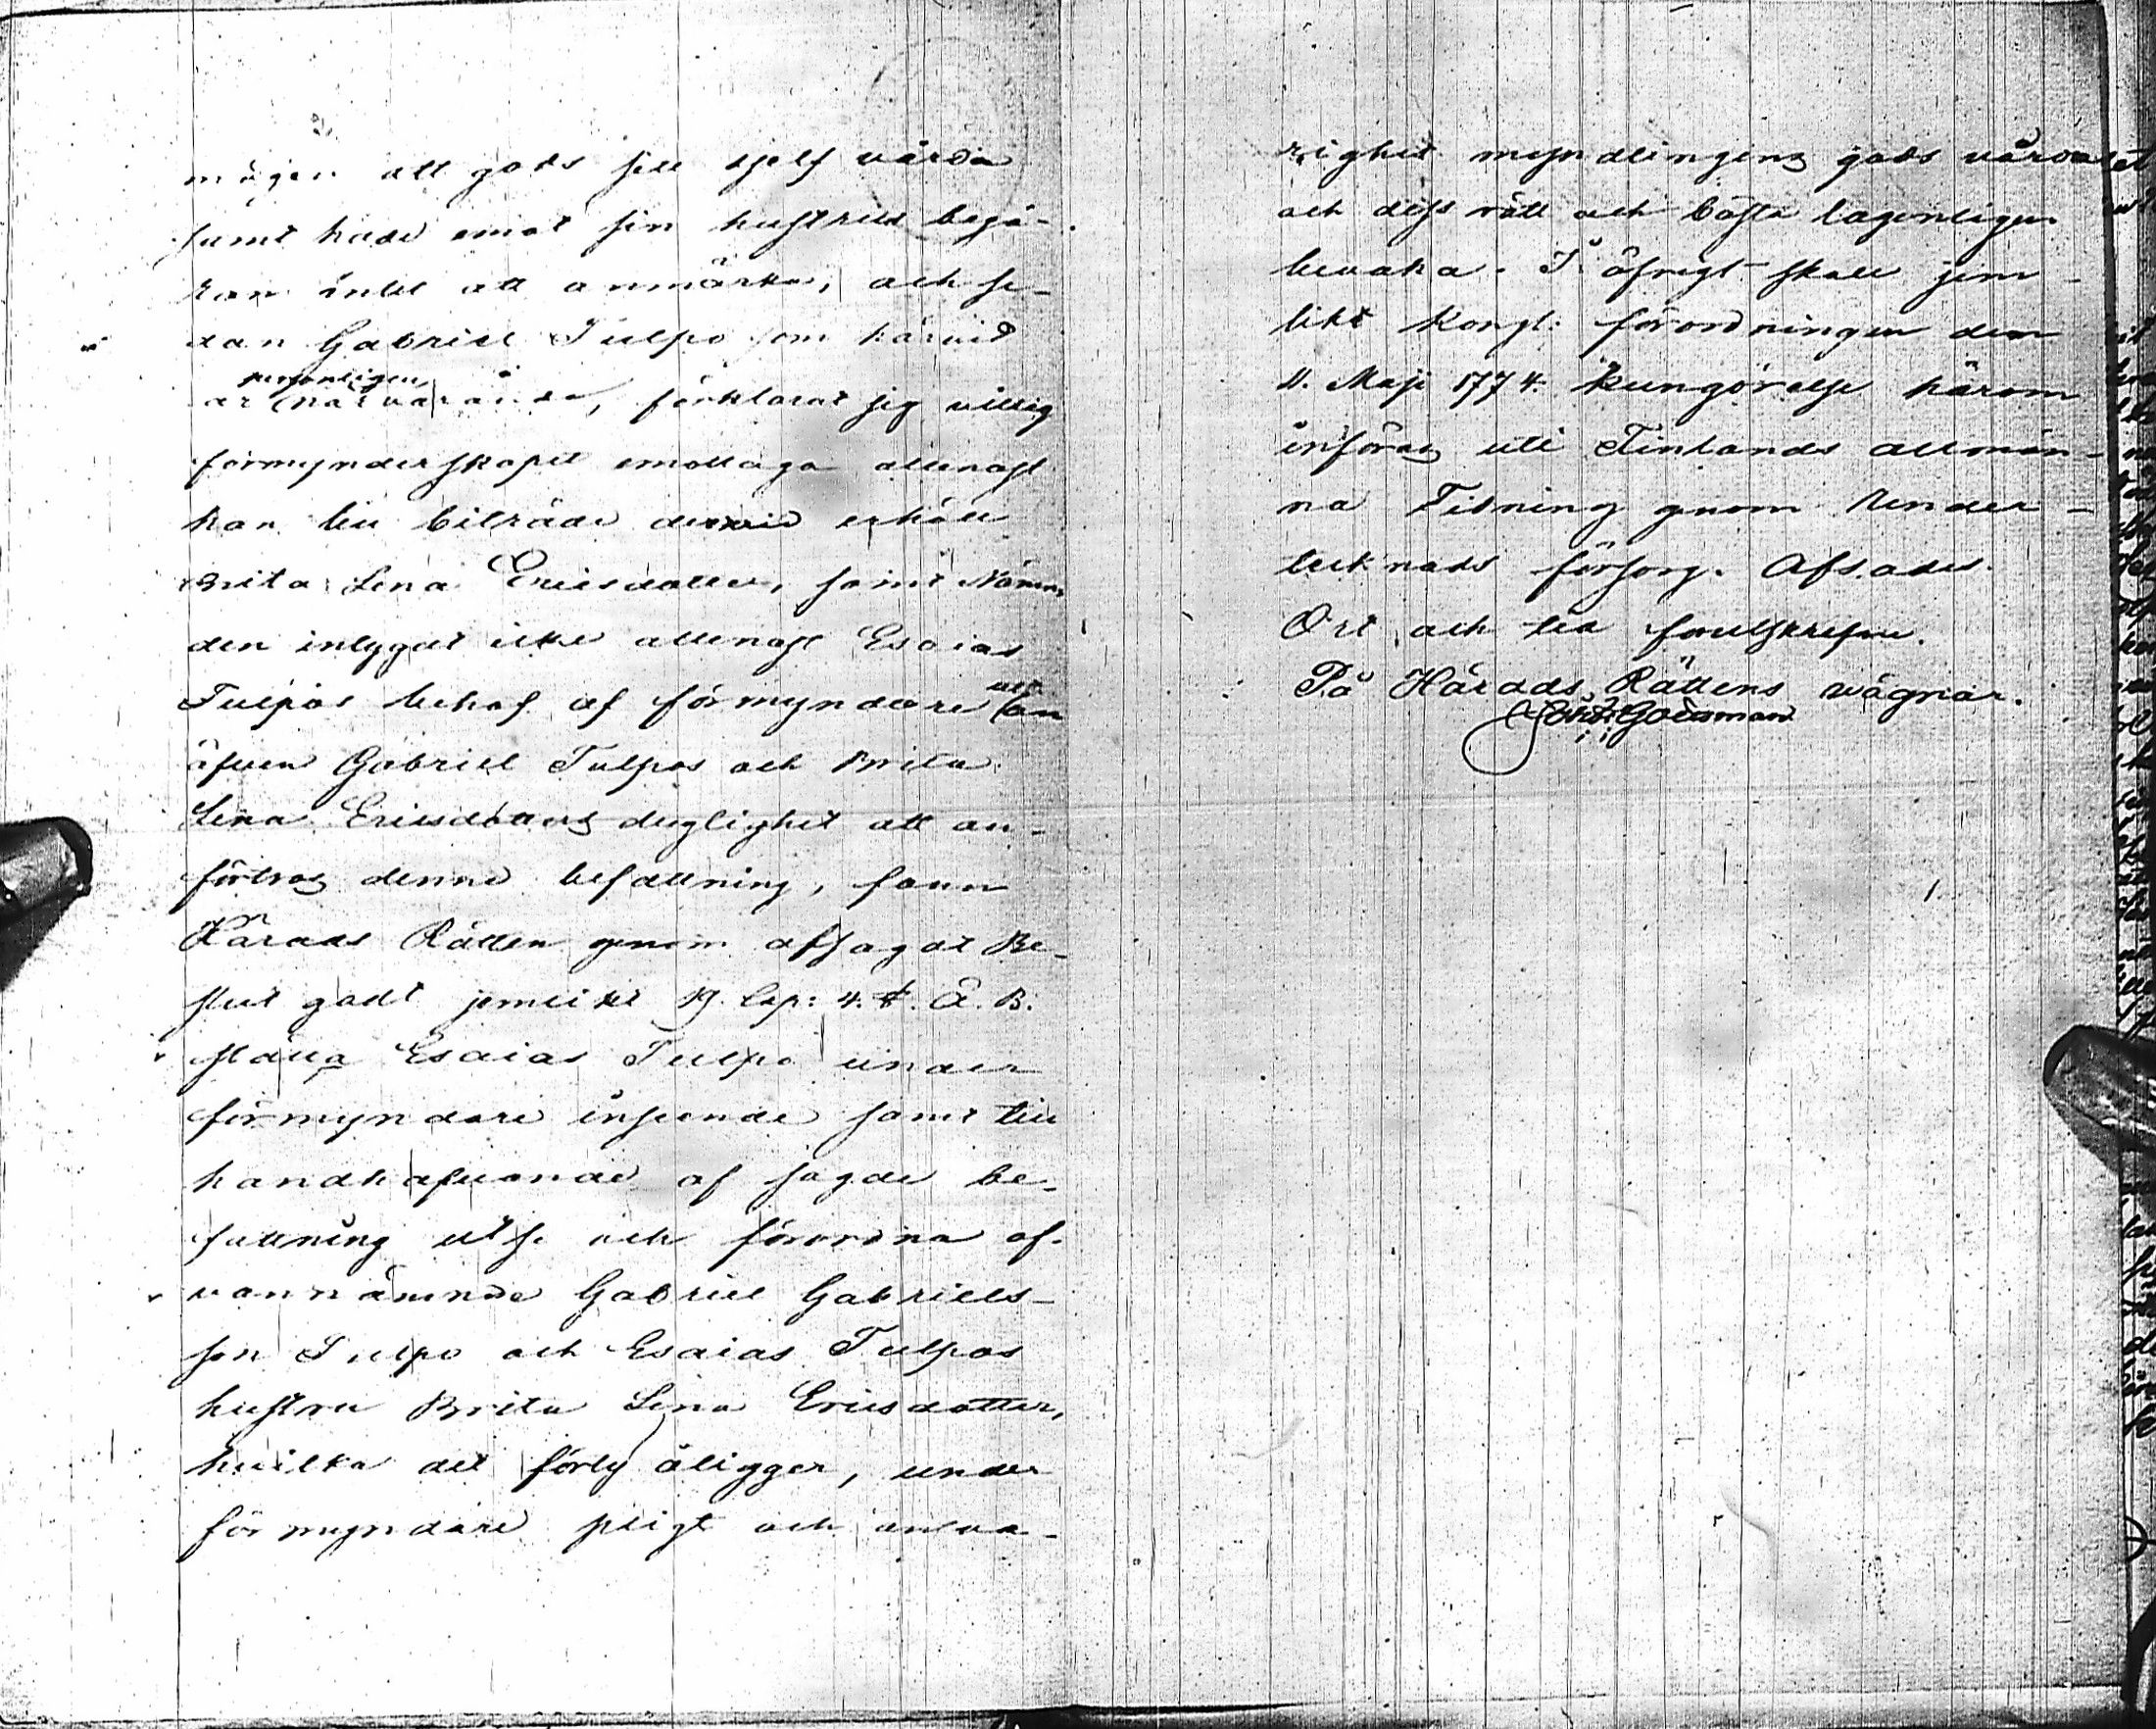 mågen att gods sitt sjelf vårda
samt hade emot sin hustrus begä-
ran intet att anmärka, och se-
dan Gabriel Tulpo som härvid
personligen
är närvarande, förklarat sig villig
förmynderskapet emottaga allenast
han till biträde dervid erhåller
Brita Lena Ericsdotter, samt Nämn-
den intygat icke allenast Esaias
Tulpos behof af förmyndare utan
äfven Gabriel Tulpos och Brita
Lena Ericsdotters duglighet att an-
förtros denna befattning, fann
Härads Rätten genom afsagdt Be-
slut godt jemlikt 19 Cap: 4. §. Ä. B.
ställa Esaias Tulpo under
förmyndare inseende samt till
handhafvande af sagde be-
fattning utse och förordna of-
vannämnde Gabriel Gabriels-
son Tulpo och Esaias Tulpos
hustru Brita Lena Ericsdotter,
hvilka det förty åligger, under
förmyndare pligt och ansva-
righet myndlingens gods vårda
och dess rätt och bästa lagenligen
bevaka. I öfrigt skall jem-
likt Kongl: förordningen den
11. Maji 1774. kungörelse härom
införas uti Finlands allmän-
na Tidning genom Under-
tecknads försorg. Afsades.
Ort och tid förutskrefne.
På Härads Rättens wägnar.